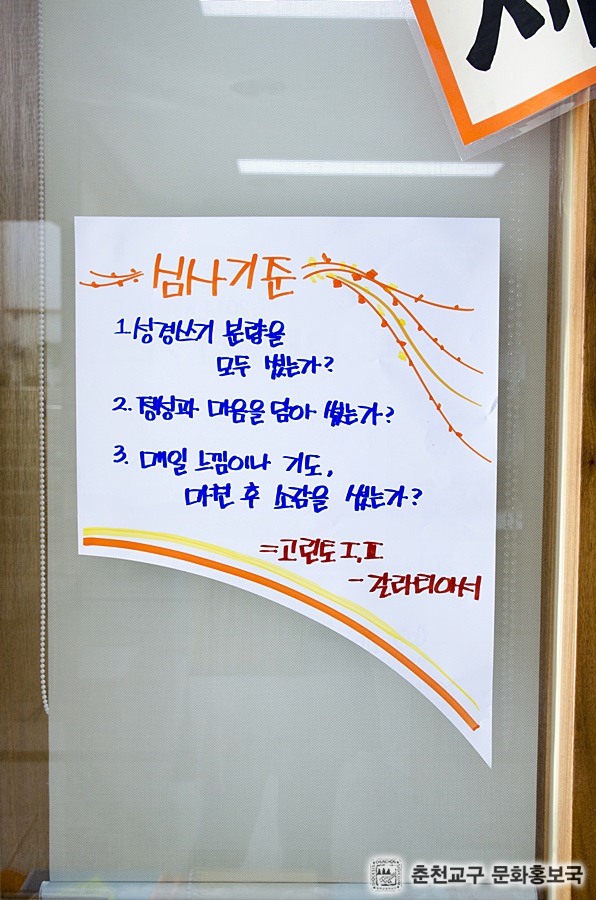 심사기준
1. 성경쓰기 분량을
모두 썼는가?
2. 정성과 마음을 담아 썼는가?
3. 매일 느낌이나 기도,
마친 후 소감을 썼는가?
=고린토 I, II
- 갈라티아서
춘천교구 문화홍보국